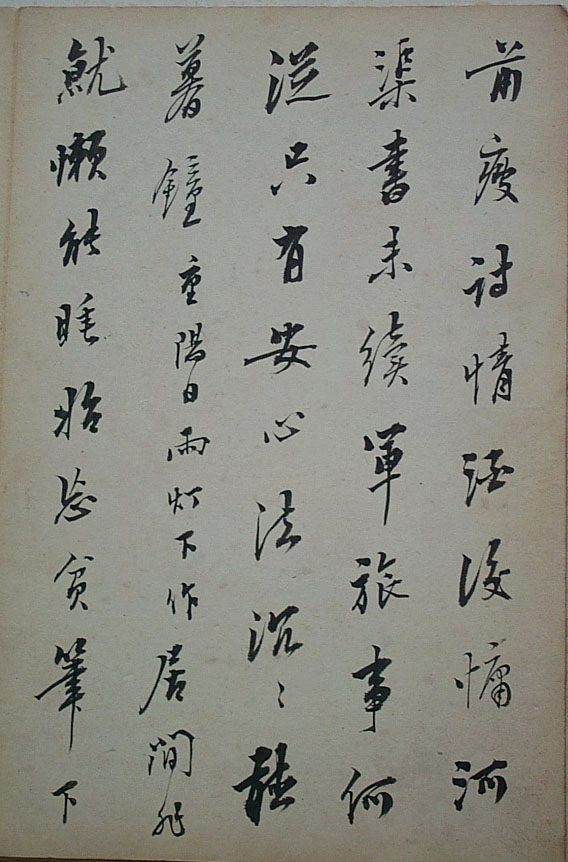 前瘦詩情酒後慵河
渠書未續軍旅事何
從只有安心法沉〻聽
暮鐘重陽日雨灯下作居間非
就懶能睡恰忘貧筆下